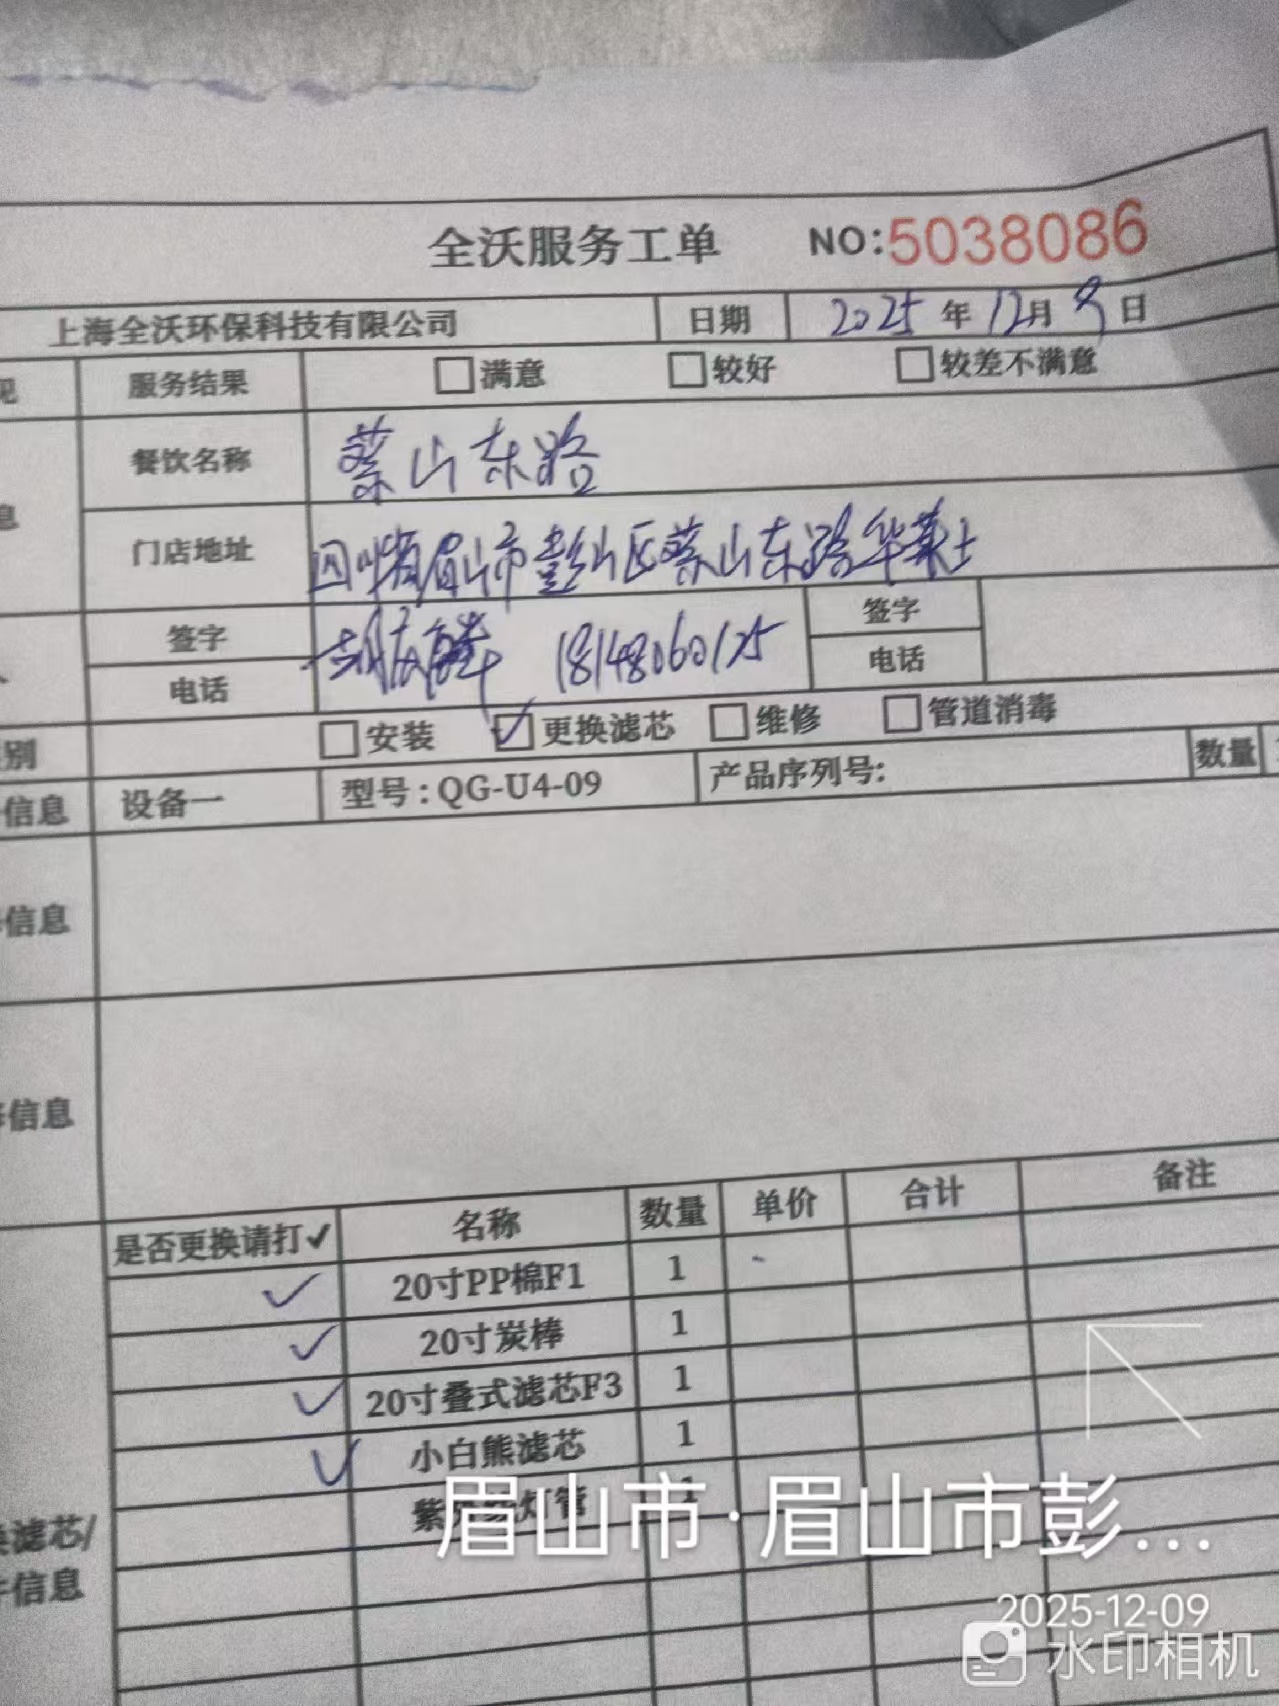 全沃服务工单 NO:5038086
上海全沃环保科技有限公司 日期 2025年12月9日
服务结果 满意 较好 较差不满意
餐饮名称 蔡山东路
门店地址 四川省眉山市彭山区蔡山东路华莱士
签字 签字
电话 18148060125 电话
别 安装 ✓更换滤芯 维修 管道消毒
信息 设备一 型号:QG-U4-09 产品序列号: 数量
信息
信息
是否更换请打✓ 名称 数量 单价 合计 备注
✓ 20寸PP棉F1 1
✓ 20寸炭棒 1
✓ 20寸叠式滤芯F3 1
✓ 小白熊滤芯 1
滤芯/
信息
眉山市·眉山市彭...
2025-12-09
水印相机